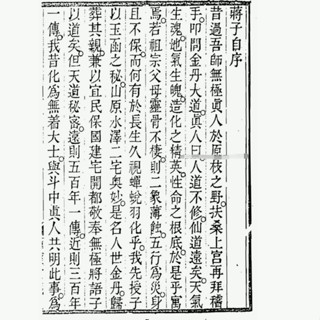 蔣子自序
昔過吾師無極眞人於原枝之野扶桑上宮再拜稽
手叩問金丹大道眞人曰人道不修仙道遠矣天氣
生魂地氣生魄造化之精英性命之根底於是乎寓
焉若祖宗父母靈骨不棲則二象薄蝕五行爲災身
且不保而何有於長生久視蟬蛻羽化乎我先授子
以玉函之秘山原水澤二宅奧妙是名人世金丹歸
葬其親兼以宜民保國建宅開都敬奉無極將語子
以道矣但天道秘密遠則五百年一傳近則三百年
一傳我昔化爲無著大士與斗中眞人共明此事爲